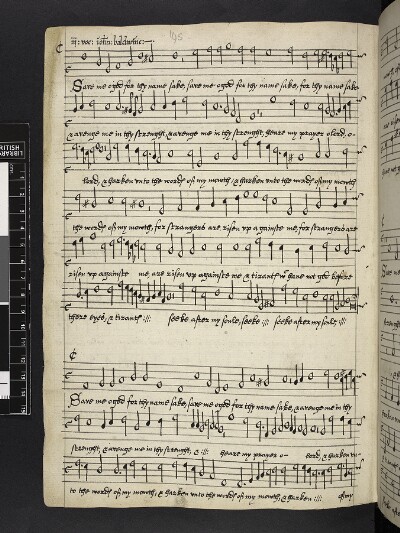 iij: voc: iohn: baldwine:
195
Save me o god for thy name sake, save me o god for thy name sake, for thy name sake
& avenge me in thy strenght, & avenge me in thy strenght, heare my prayer o lord, o
lord, & harken unto the words of my mowth, & harken unto the words of my mowth
the words of my mowth, for strangers are risen vp against me, for strangers are
risen vp againste me, are risen vp againste me & tirants wc have not god before
there eyes, & tirants :||: seeke after my soule, seeke :||: seeke after my soule :||:
Save me o god for thy name sake, save me o god for thy name sake, & avenge me in thy
strenght, & avenge me in thy strenght, & :||: heare my prayer o lord, & harken vn
to the words of my mowth, & harken vnto the words of my mowth, & harken :||: of my